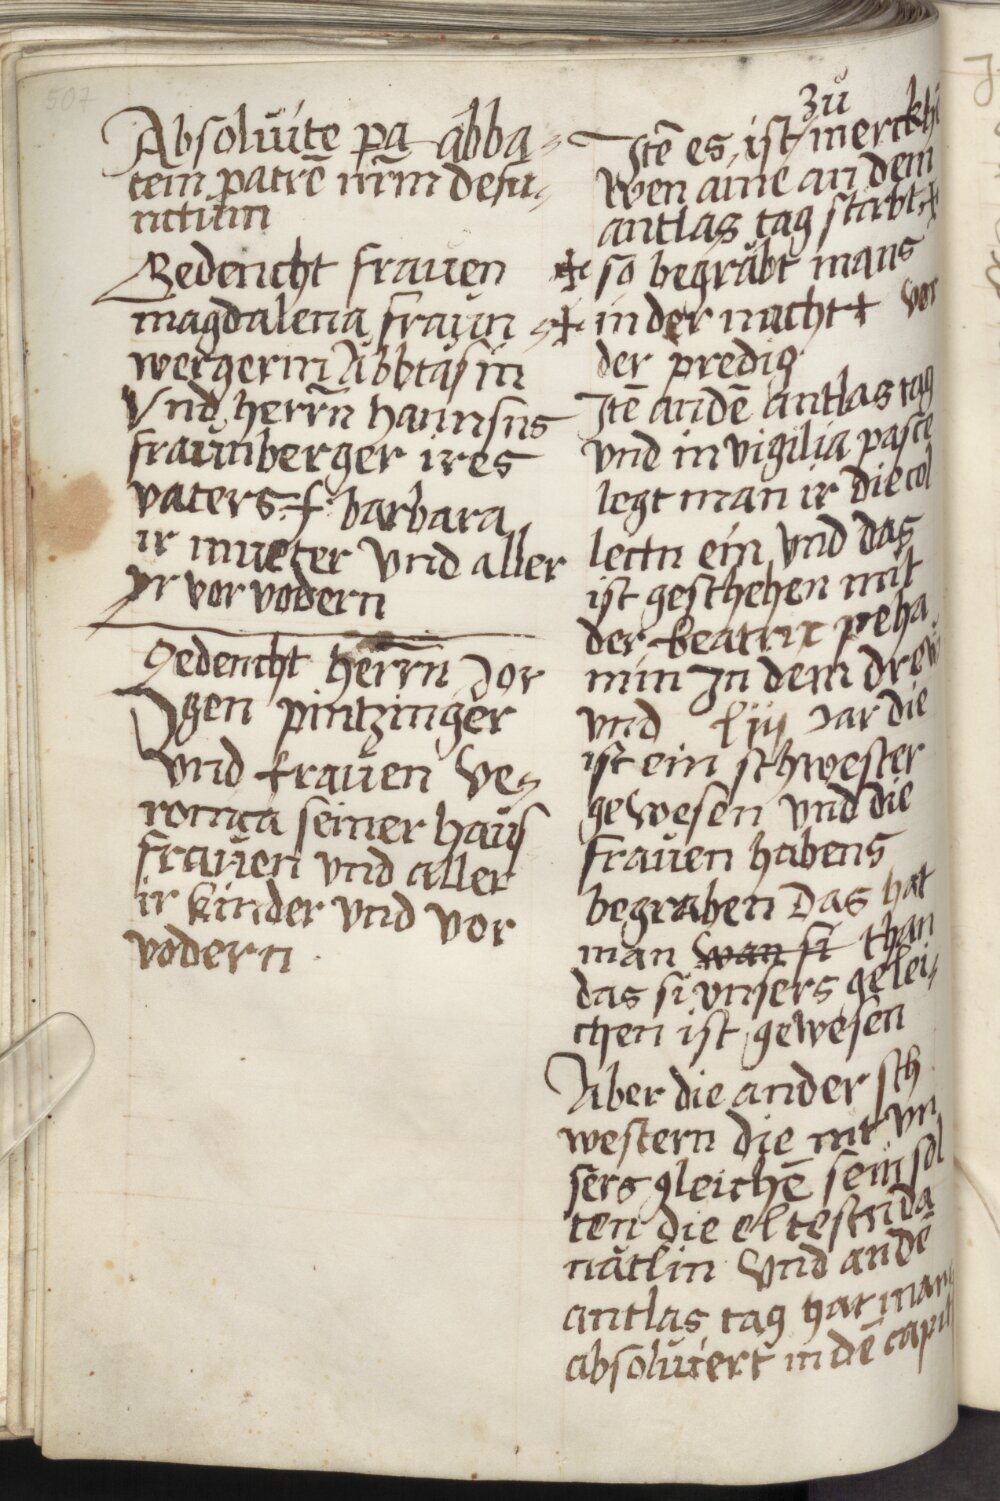 507
Absoluite pa abba⸗
tem patrē nr̄m defu⸗
nctum
Gedencht frauen
magdalena fraun
wergerin Abbtäsin
Vnd herrn hannsns
fraunberger ires
vaters f barbara
ir mueter vnd aller
yr vor vodern
Gedencht herrn Jor
gen pintzinger
vnd frauen Ve⸗
ronica seiner haus
frauen vnd aller
ir kinder vnd vor
vodern
Itē es ist zu merckh
wen aine an dem
antlas tag stirbt
so begräbt mans
in der nacht vor
der predig
Itē an dē antlas tag
vnd in vigilia pasce
legt man ir die col
lectn ein vnd das
ist geschehen mit
der beatrix peha
min In dem drew
vnd liij Jar die
ist ein schwester
gewesen vnd die
frauen habens
begraben Das hat
man wan si than
das si vnsers gelei⸗
chen ist gewesen
Aber die ander sch
western die nit vn
sers gleichē sein sol
ten die eltestn da
nätlin vnd an dē
antlas tag hat man
absoluiert in dē capitl